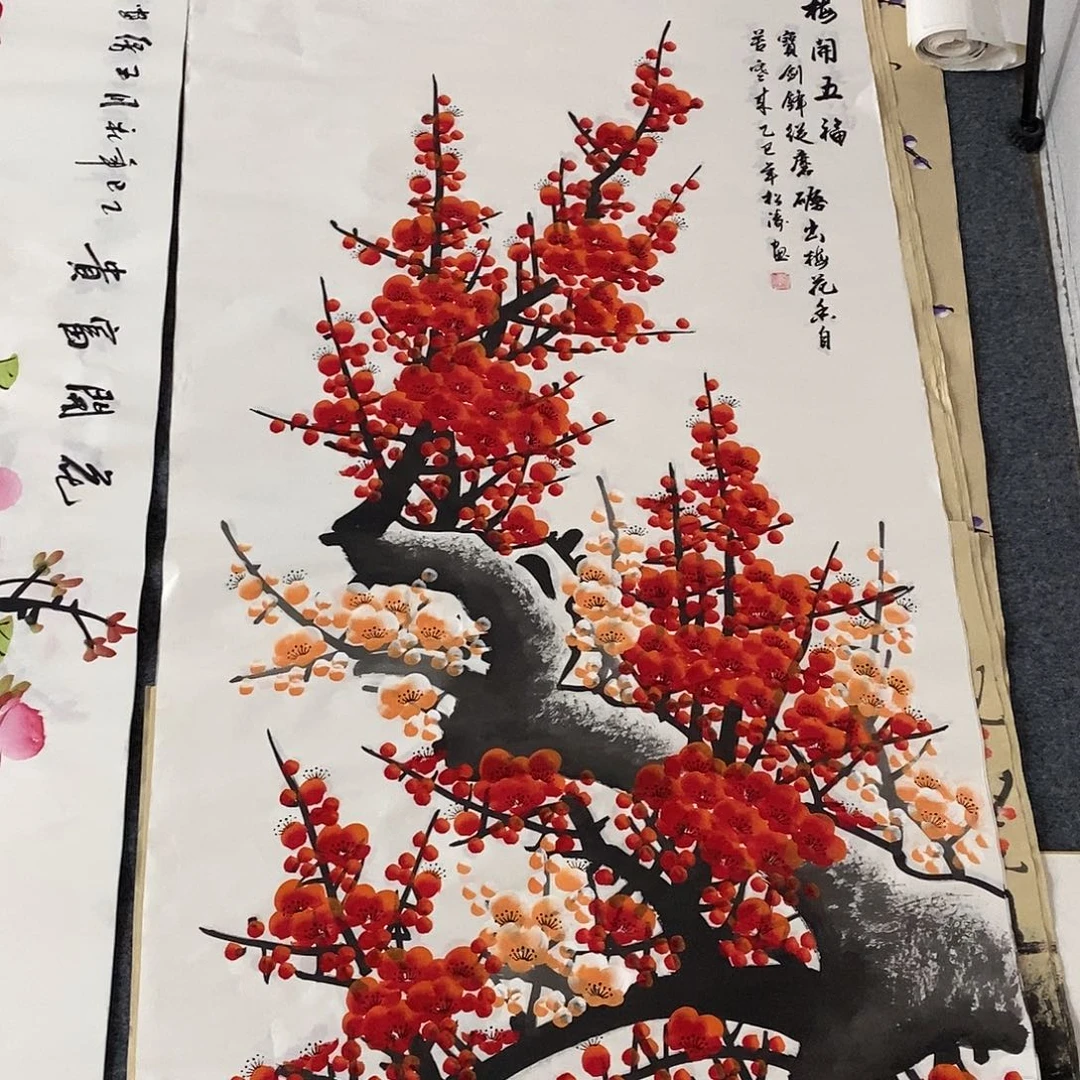 梅開五福
寶劍鋒從磨礪出梅花香自
苦寒來乙巳年松濤畫
花開富貴
乙巳年秋月